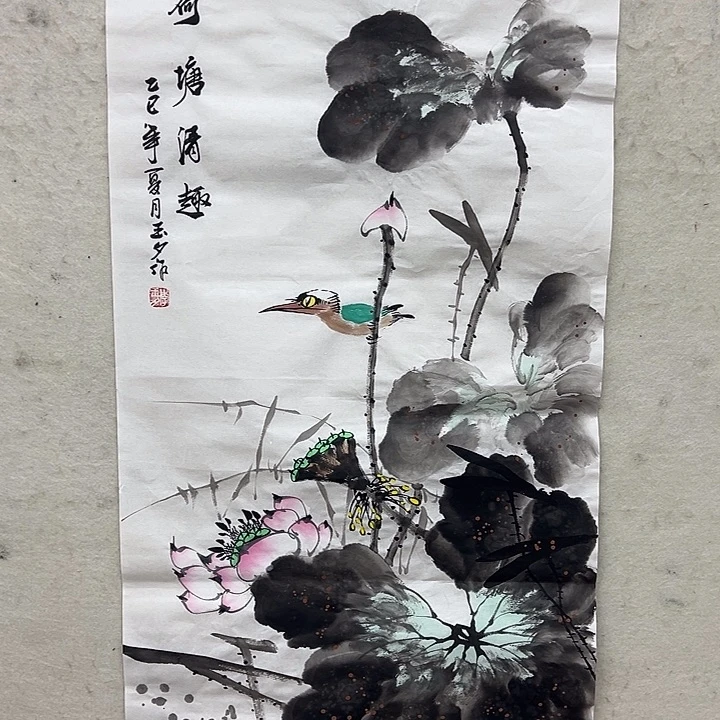 荷塘清趣
乙巳年夏月玉夕作